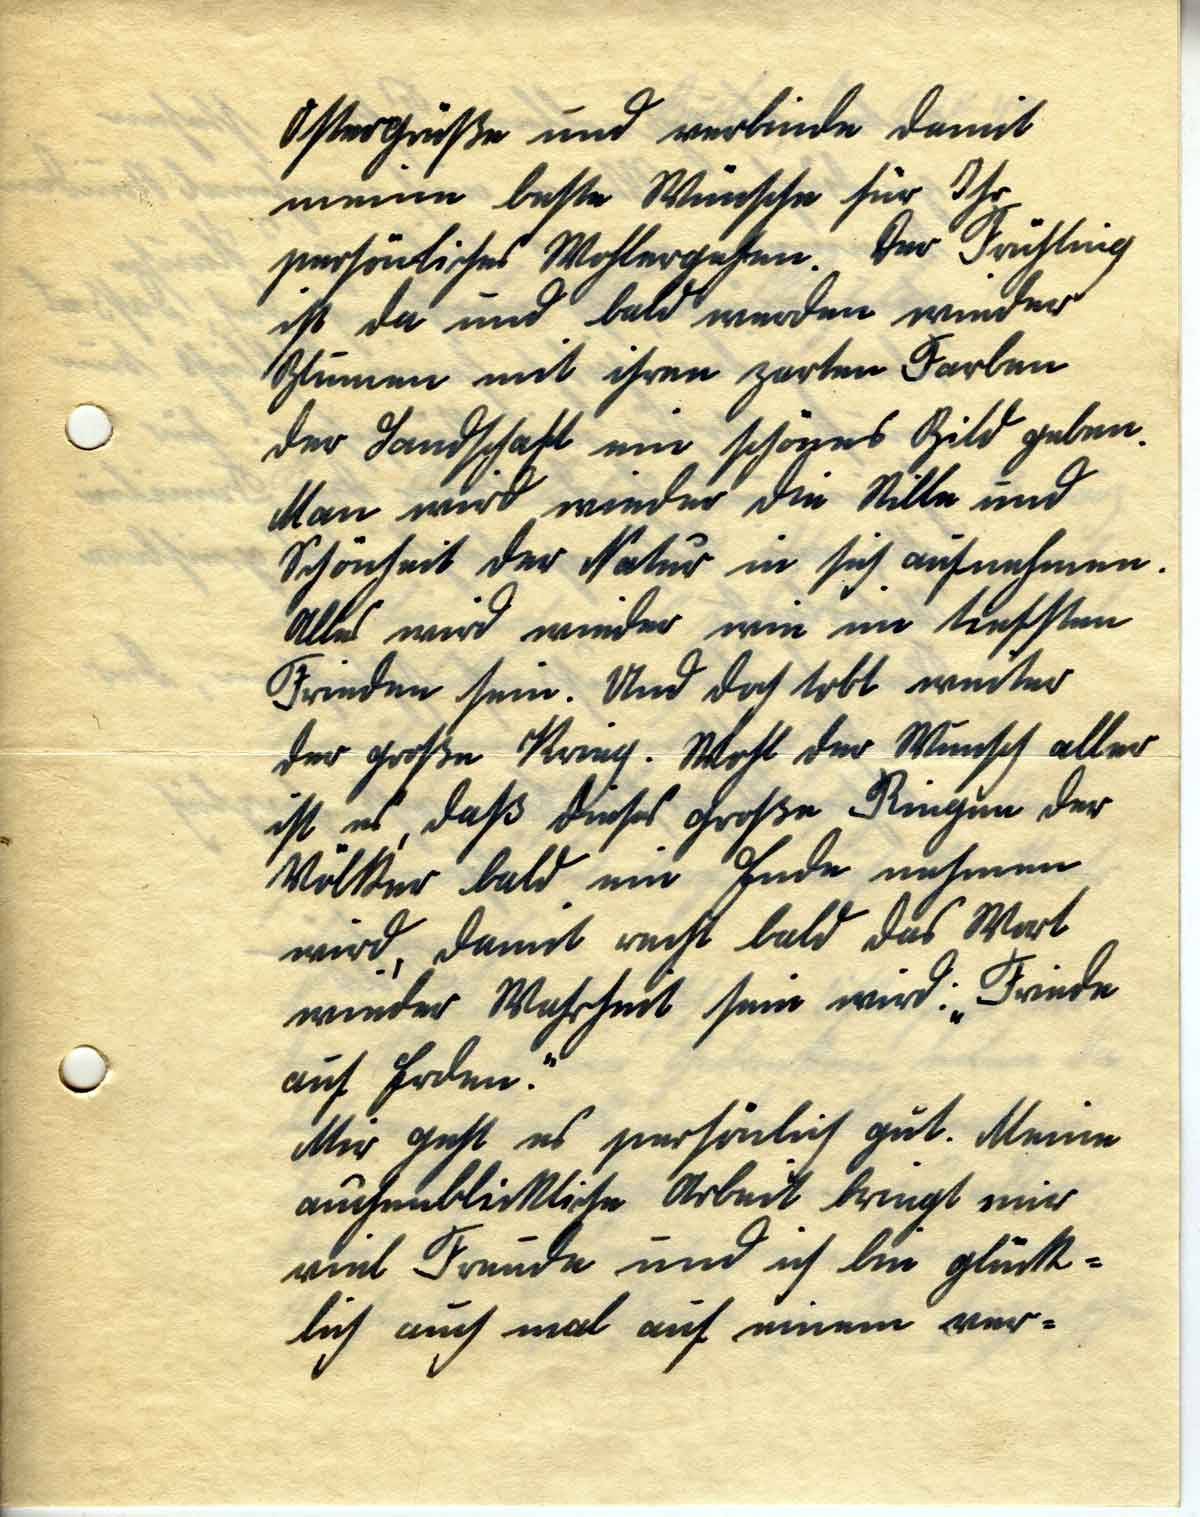 Ostergrüße und verbinde damit
meine beste Wünsche für Ihr
persönliches Wohlergehen. Der Frühling
ist da und bald werden wieder
Blumen mit ihren zarten Farben
der Landschaft ein schönes Bild geben.
Man wird wieder die Stille und
Schönheit der Natur in sich aufnehmen.
Alles wird wieder wie im tiefsten
Frieden sein. Und doch tobt weiter
der große Krieg. Wohl der Wunsch aller
ist es, daß dieses große Ringen der
Völker bald ein Ende nehmen
wird, damit recht bald das Wort
wieder Wahrheit sein wird: „Friede
auf Erden.“
Mir geht es persönlich gut. Meine
augenblickliche Arbeit bringt mir
viel Freude und ich bin glück=
lich auch mal auf einem ver=